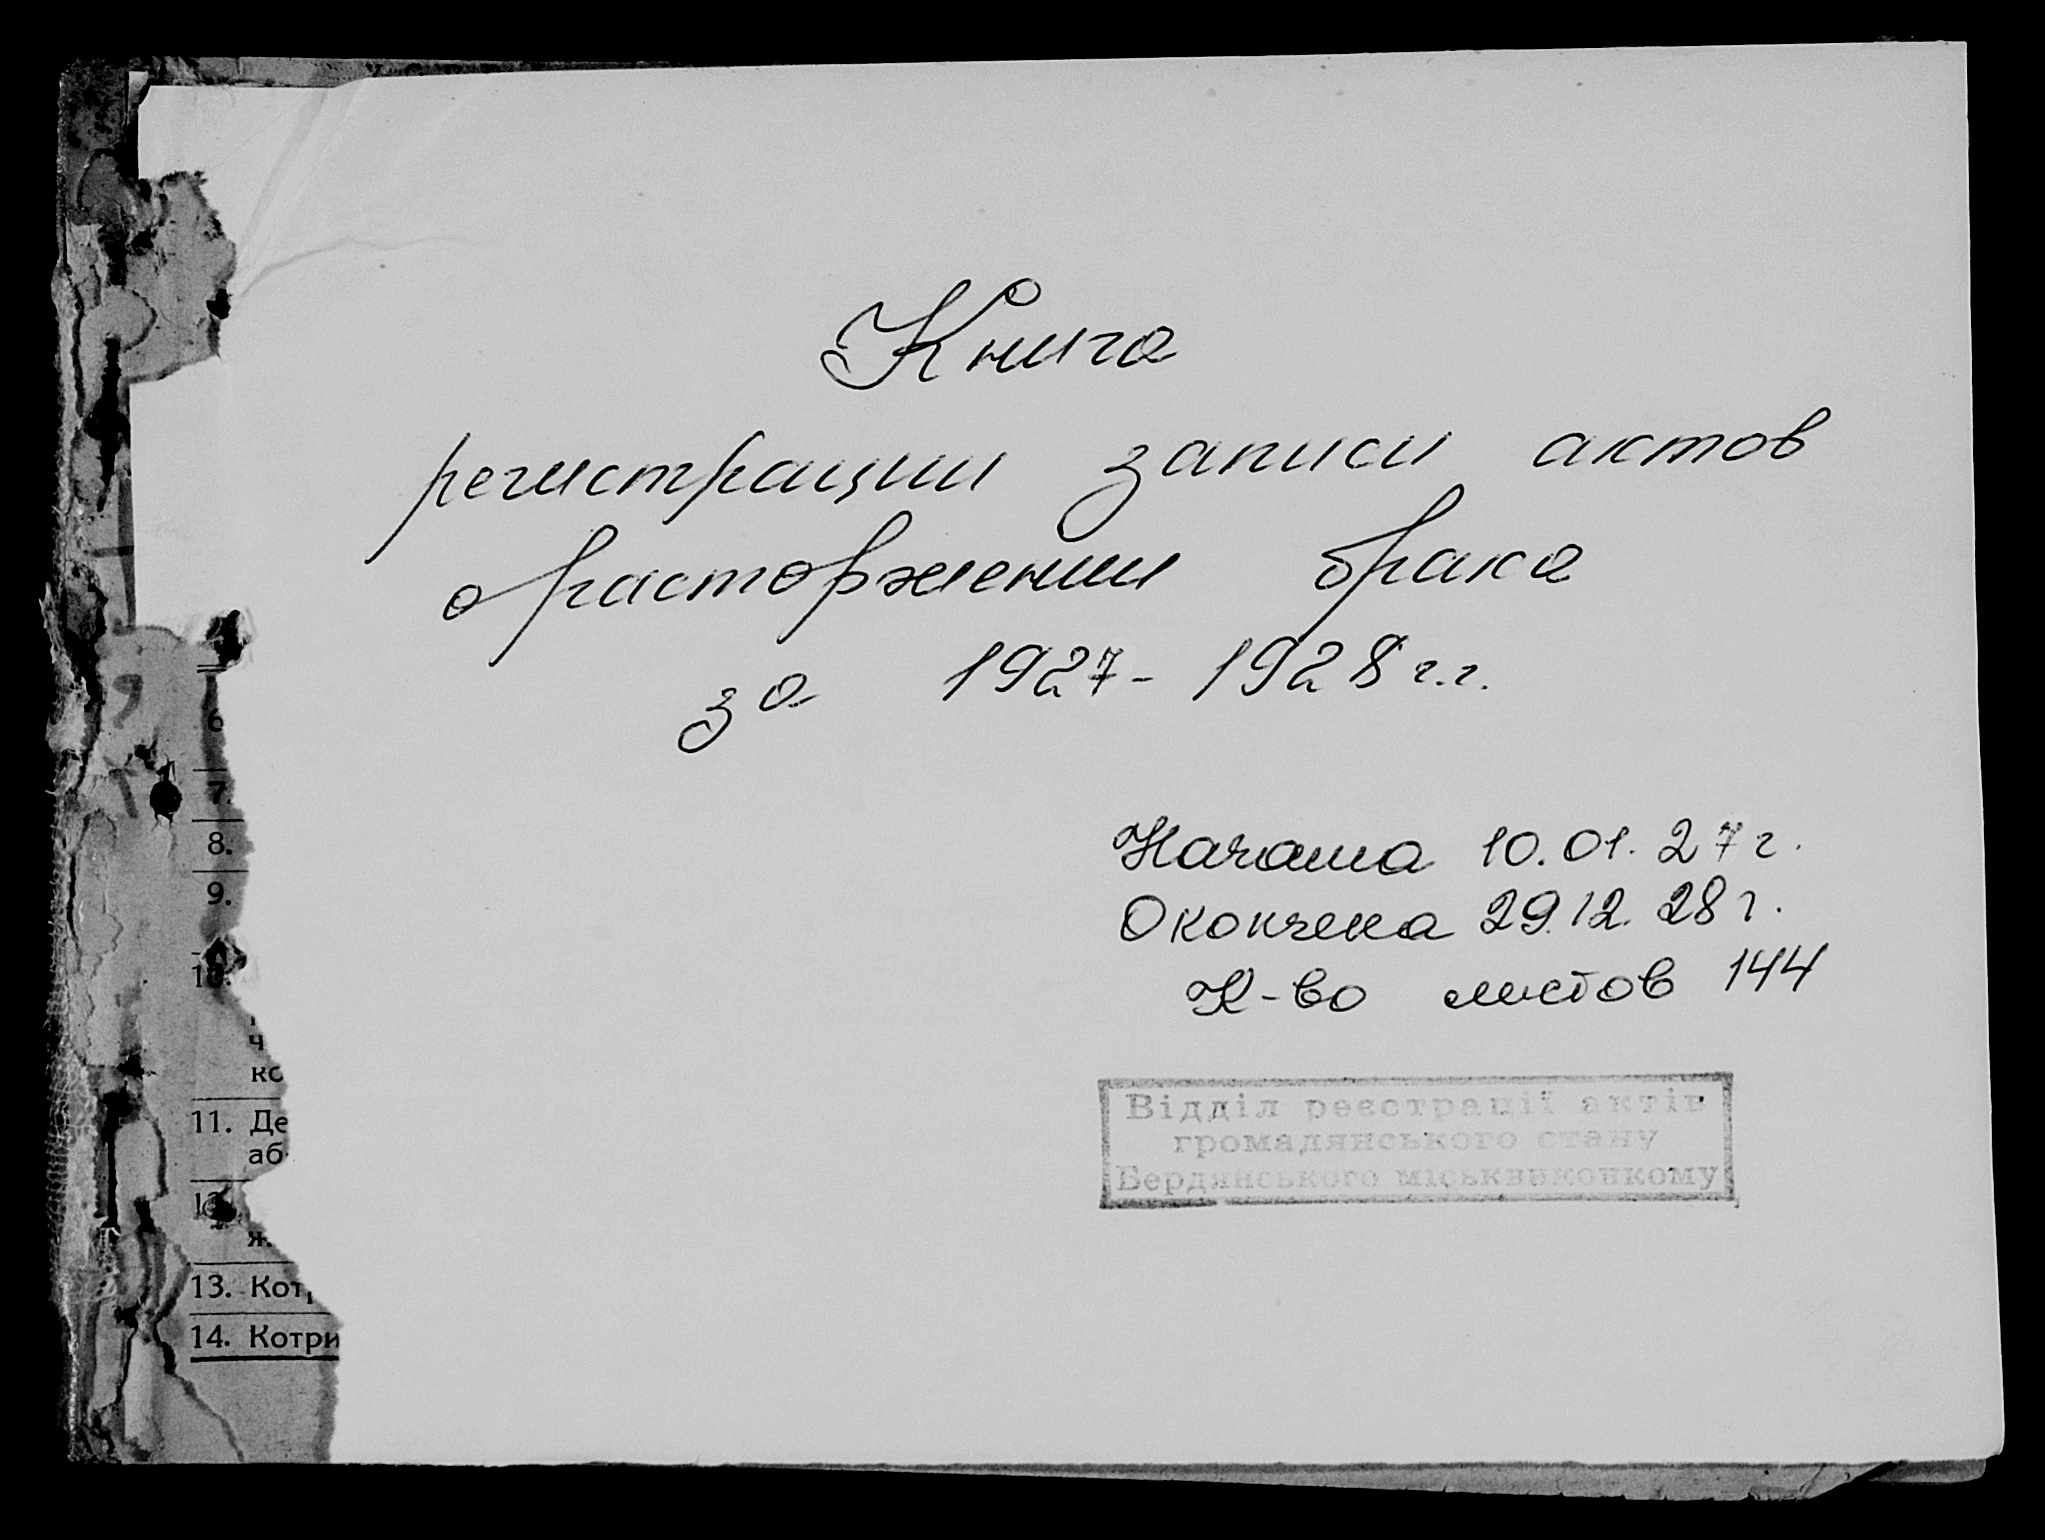 Книга
регистрации записи актов
о расторжении брака
за 1927-1928 г.г.
Начата 10.01.27 г.
Окончена 29.12.28 г.
К-во листов 144
Відділ реєстрації актів
громадянського стану
Бердянського міськвиконкому
6
7.
8.
9.
10.
ч
ко
11. Де
аб
12.
я.
13. Кот
14. Котри